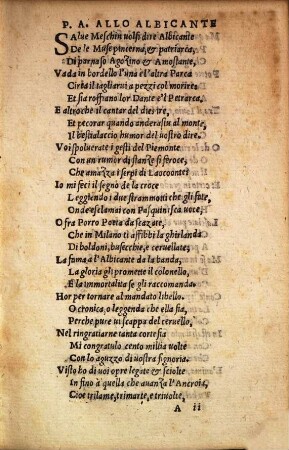 P. A. ALLO ALBICANTE
SAlue Meschin uolsi dire Albicante
De le Muse pincerna, & patriarca,
Di parnaso Agozino & Amostante,
Vada in bordello l'una e l'altra Parca
Ch'a il tagliarui a pezzi col morire
Et sia roffiano lor Dante e'l Petrarca,
E altro che il cantar del dies ire,
Et pecorar quando anderassi al monte,
Il bestialaccio humor del uostro dire.
Voi spoluerate i gesti del Piemonte
Con un rumor di stanze si feroce,
Che amazza i serpi di Laocoonte:
Io mi feci il segno de la croce
Leggiendo i due strammotti che gli fate,
Onde esclamai con Pasquinisca uoce,
O fra Porro Poeta da scazate,
Che in Milano ti affibbi la ghirlanda
Di boldoni, busecchie, e ceruellate;
La fuma a l'Albicante da la banda,
La gloria gli promette il colonello,
E la immortalita se gli raccomanda.
Hor per tornare al mandato libello.
O cronica, o leggenda che ella sia,
Perche pure ui scappa del ceruello,
Nel ringratiarne tanta cortesia
Mi congratulo cento milia uolte
Con lo aguzzo di uostra signoria.
Visto ho di uoi opre legate & sciolte
In fino à quella che auanza l'Ancroia,
Cioe trilame, trimarte, e triuolte,
A ii